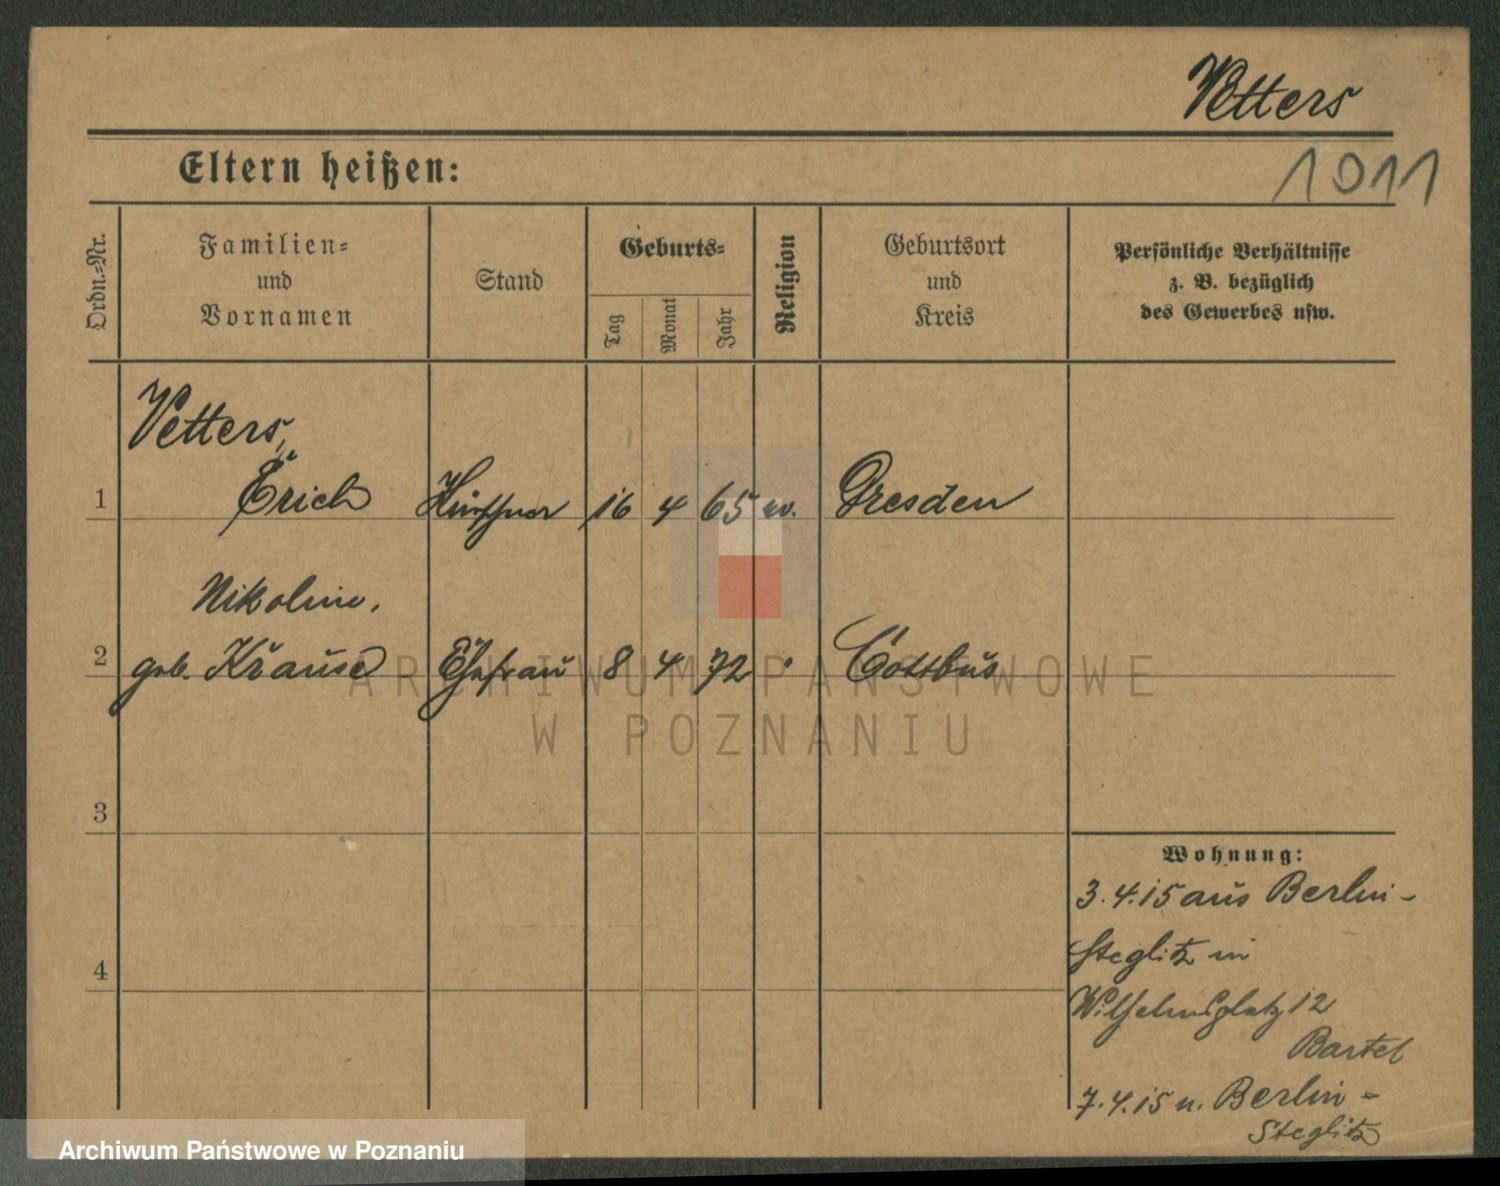 Vetters
Eltern heißen:
1911
Ordn.=Nr.
Familien=
und
Vornamen
Stand
Geburts=
Tag
Monat
Jahr
Religion
Geburtsort
und
Kreis
Persönliche Verhältnisse
z. B. bezüglich
des Gewerbes usw.
Vetters,
1 Erich 16 4 65 ev. Dresden
Nikoline,
2 geb. Krause Ehefrau 8 4 72 " Cottbus
ARCHIWUM PAŃSTWOWE
W POZNANIU
3
Wohnung:
3.4.15 aus Berlin-
Steglitz in
4
Wilhelmsplatz 12
Bartel
7.4.15 n. Berlin-
Steglitz
Archiwum Państwowe w Poznaniu